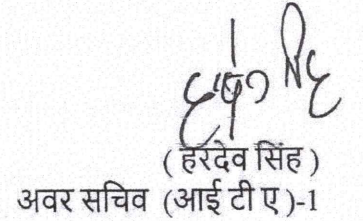 ( हरदेव सिंह )
अवर सचिव (आई टी ए)-1